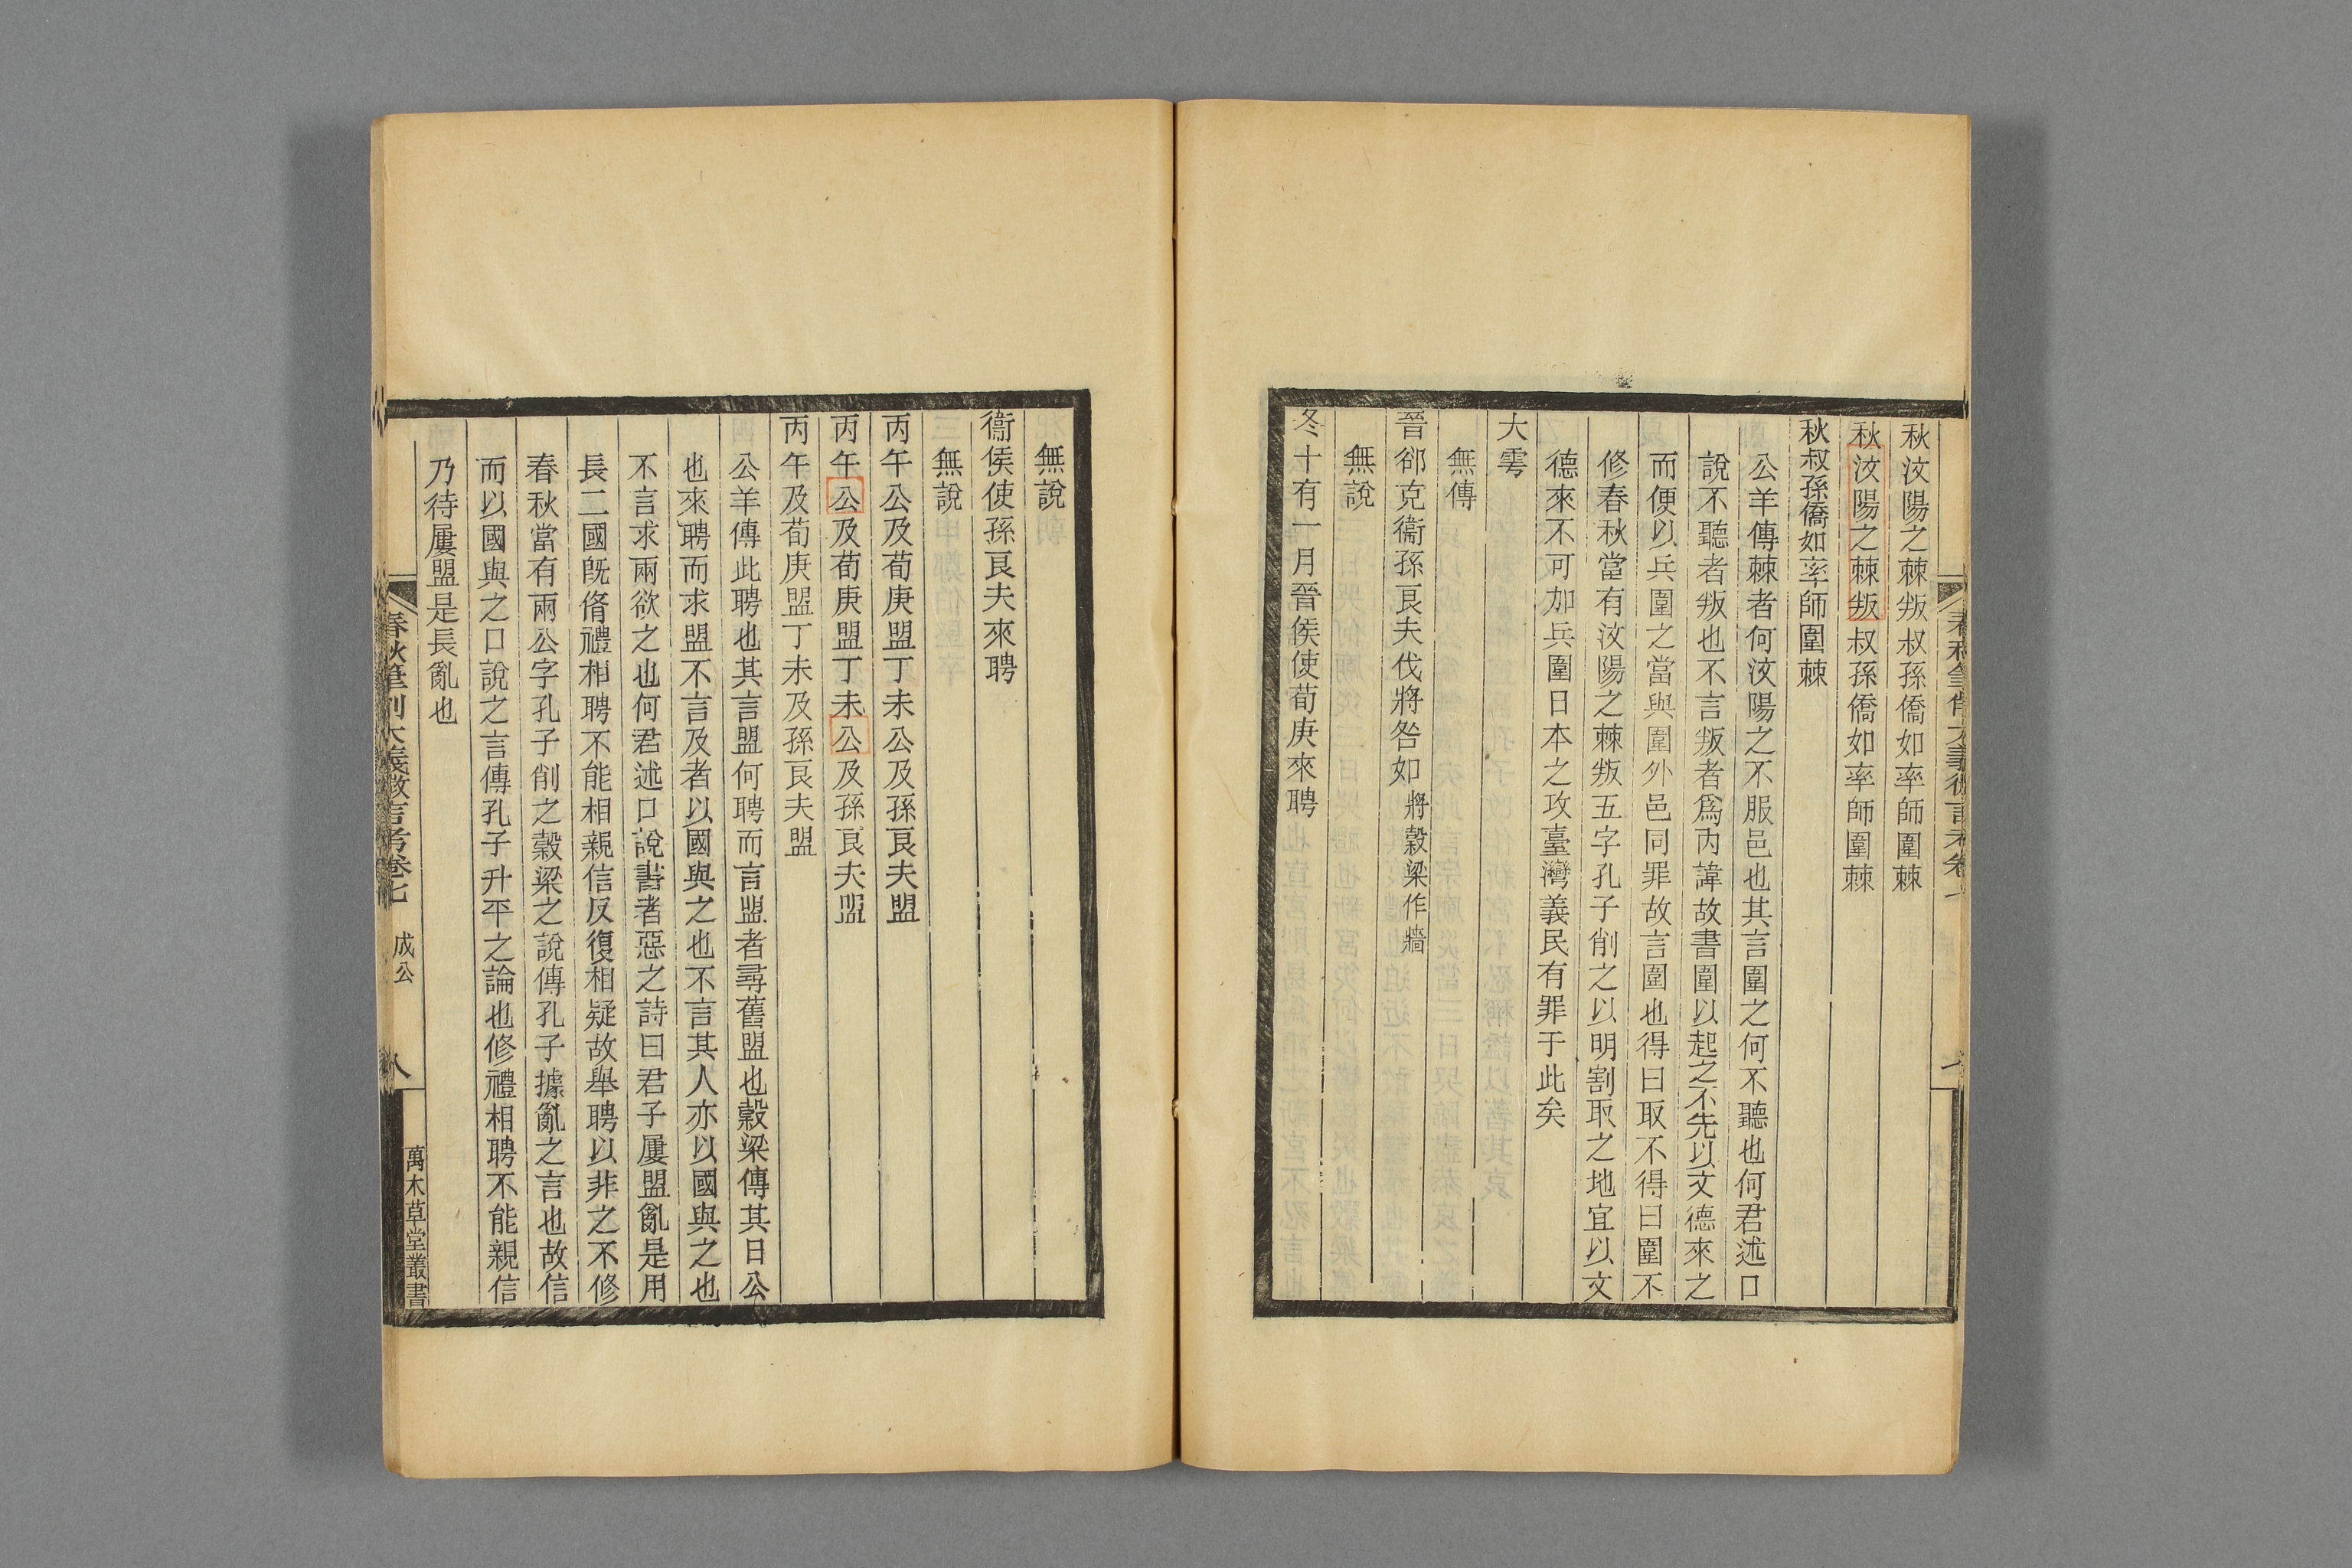 秋汶陽之棘叛叔孫僑如率師圍棘
秋汶陽之棘叛叔孫僑如率師圍棘
秋叔孫僑如率師圍棘
公羊傳棘者何汶陽之不服邑也其言圍之何不聽也何君述口
說不聽者叛也不言叛者爲內諱故書圍以起之不先以文德來之
而便以兵圍之當與圍外邑同罪故言圍也得曰取不得曰圍不
修春秋當有汶陽之棘叛五字孔子削之以明割取之地宜以文
德來不可加兵圍日本之攻臺灣義民有罪于此矣
大雩
無傳
晉郤克衞孫良夫伐將咎如將穀梁作牆
無說
冬十有一月晉侯使荀庚來聘
無說
衞侯使孫良夫來聘
無說
丙午公及荀庚盟丁未公及孫良夫盟
丙午公及荀庚盟丁未公及孫良夫盟
丙午及荀庚盟丁未及孫良夫盟
公羊傳此聘也其言盟何聘而言盟者尋舊盟也穀梁傳其日公
也來聘而求盟不言及者以國與之也不言其人亦以國與之也
不言求兩欲之也何君述口說書者惡之詩曰君子屢盟亂是用
長二國旣脩禮相聘不能相親信反復相疑故舉聘以非之不修
春秋當有兩公字孔子削之穀梁之說傳孔子據亂之言也故信
而以國與之口說之言傳孔子升平之論也修禮相聘不能親信
乃待屢盟是長亂也
春秋筆削大義微言考卷七 成公 八 萬木草堂叢書